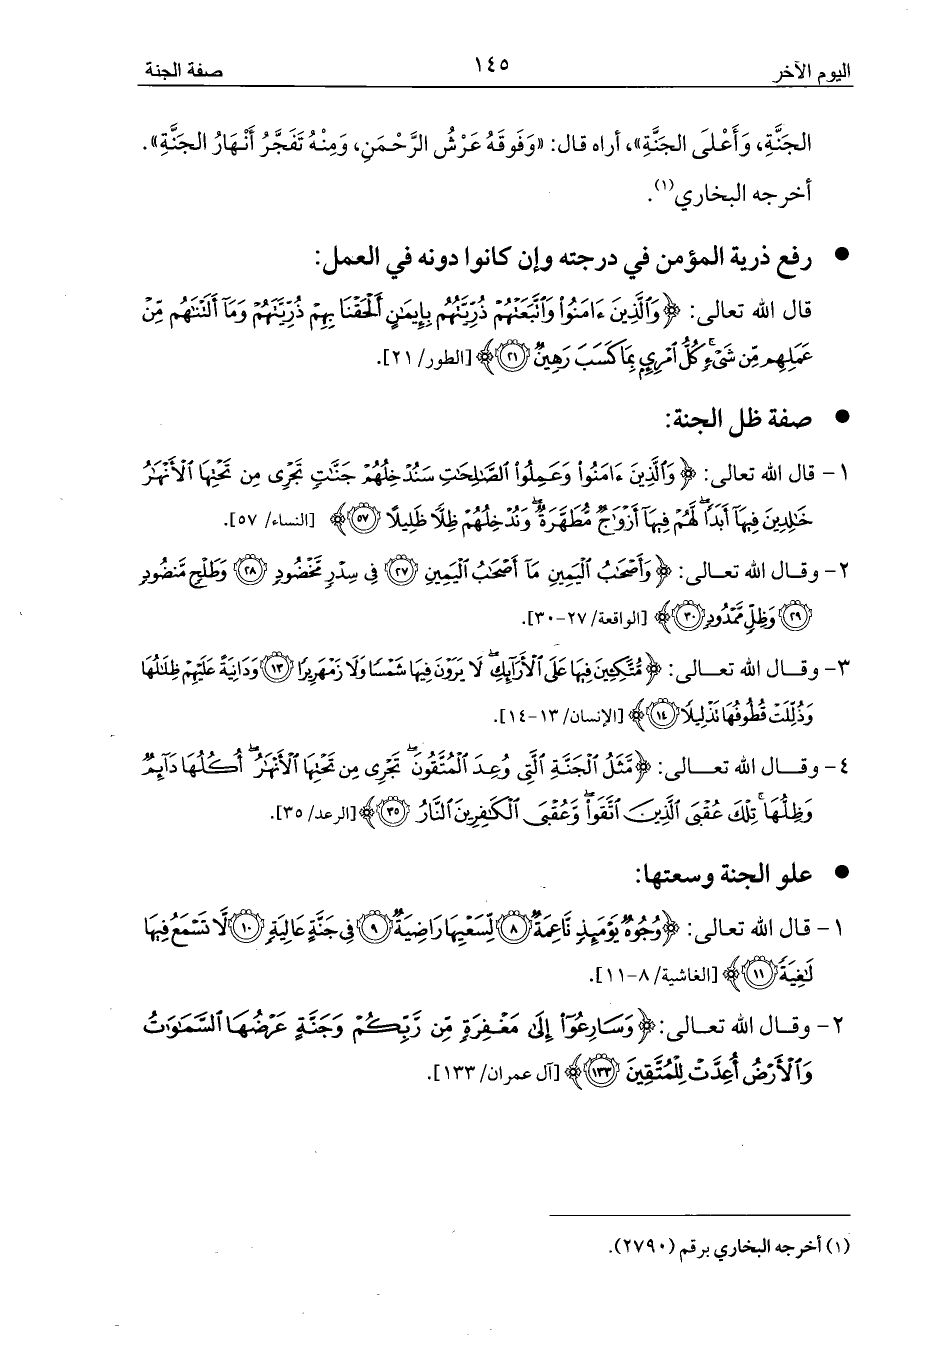 اليوم الآخر ١٤٥ صفة الجنة
الجَنَّةِ، وَأَعْلَى الجَنَّةِ»، أراه قال: «وَفَوقَهُ عَرْشُ الرَّحْمَنِ، وَمِنْهُ تَفَجَّرُ أَنْهَارُ الجَنَّةِ».
أخرجه البخاري(١).
● رفع ذرية المؤمن في درجته وإن كانوا دونه في العمل:
قال الله تعالى: ﴿وَٱلَّذِينَ ءَامَنُوا۟ وَٱتَّبَعَتْهُمْ ذُرِّيَّتُهُم بِإِيمَٰنٍ أَلْحَقْنَا بِهِمْ ذُرِّيَّتَهُمْ وَمَآ أَلَتْنَٰهُم مِّنْ
عَمَلِهِم مِّن شَىْءٍ ۚ كُلُّ ٱمْرِئٍۭ بِمَا كَسَبَ رَهِينٌ ٢١﴾ [الطور/ ٢١].
● صفة ظل الجنة:
١- قال الله تعالى: ﴿وَٱلَّذِينَ ءَامَنُوا۟ وَعَمِلُوا۟ ٱلصَّٰلِحَٰتِ سَنُدْخِلُهُمْ جَنَّٰتٍ تَجْرِى مِن تَحْتِهَا ٱلْأَنْهَٰرُ
خَٰلِدِينَ فِيهَآ أَبَدًا ۖ لَّهُمْ فِيهَآ أَزْوَٰجٌ مُّطَهَّرَةٌ ۖ وَنُدْخِلُهُمْ ظِلًّا ظَلِيلًا ٥٧﴾ [النساء/ ٥٧].
٢- وقال الله تعالى: ﴿وَأَصْحَٰبُ ٱلْيَمِينِ مَآ أَصْحَٰبُ ٱلْيَمِينِ ٢٧ فِى سِدْرٍ مَّخْضُودٍ ٢٨ وَطَلْحٍ مَّنضُودٍ
٢٩ وَظِلٍّ مَّمْدُودٍ ٣٠﴾ [الواقعة/ ٢٧-٣٠].
٣- وقال الله تعالى: ﴿مُّتَّكِـِٔينَ فِيهَا عَلَى ٱلْأَرَآئِكِ ۖ لَا يَرَوْنَ فِيهَا شَمْسًا وَلَا زَمْهَرِيرًا ١٣ وَدَانِيَةً عَلَيْهِمْ ظِلَٰلُهَا
وَذُلِّلَتْ قُطُوفُهَا تَذْلِيلًا ١٤﴾ [الإنسان/ ١٣-١٤].
٤- وقال الله تعالى: ﴿مَّثَلُ ٱلْجَنَّةِ ٱلَّتِى وُعِدَ ٱلْمُتَّقُونَ ۖ تَجْرِى مِن تَحْتِهَا ٱلْأَنْهَٰرُ ۖ أُكُلُهَا دَآئِمٌ
وَظِلُّهَا ۚ تِلْكَ عُقْبَى ٱلَّذِينَ ٱتَّقَوا۟ ۖ وَّعُقْبَى ٱلْكَٰفِرِينَ ٱلنَّارُ ٣٥﴾ [الرعد/ ٣٥].
● علو الجنة وسعتها:
١- قال الله تعالى: ﴿وُجُوهٌ يَوْمَئِذٍ نَّاعِمَةٌ ٨ لِّسَعْيِهَا رَاضِيَةٌ ٩ فِى جَنَّةٍ عَالِيَةٍ ١٠ لَّا تَسْمَعُ فِيهَا
لَٰغِيَةً ١١﴾ [الغاشية/ ٨-١١].
٢- وقال الله تعالى: ﴿وَسَارِعُوٓا۟ إِلَىٰ مَغْفِرَةٍ مِّن رَّبِّكُمْ وَجَنَّةٍ عَرْضُهَا ٱلسَّمَٰوَٰتُ
وَٱلْأَرْضُ أُعِدَّتْ لِلْمُتَّقِينَ ١٣٣﴾ [آل عمران/ ١٣٣].
(١) أخرجه البخاري برقم (٢٧٩٠).